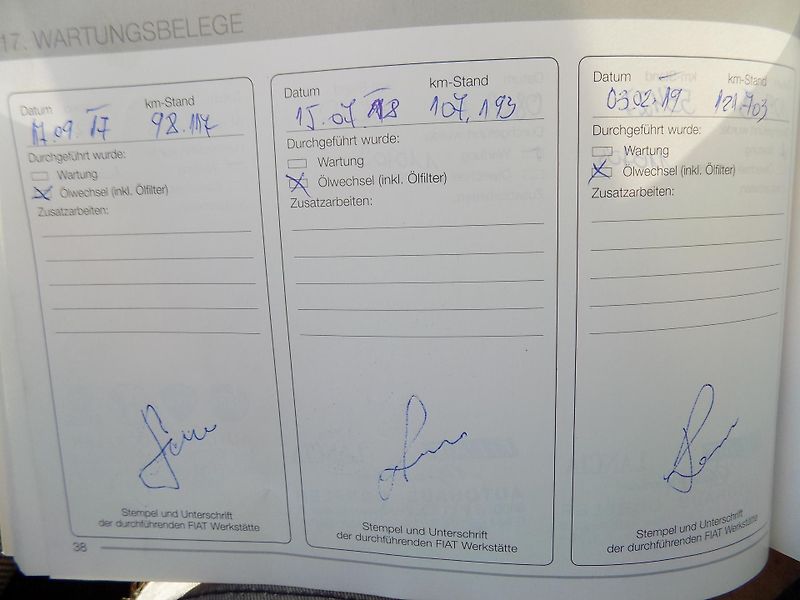 17. WARTUNGSBELEGE
Datum km-Stand
17.09.17 98.117
Durchgeführt wurde:
Wartung
Ölwechsel (inkl. Ölfilter)
Zusatzarbeiten:
Stempel und Unterschrift
der durchführenden FIAT Werkstätte
38
Datum km-Stand
15.07.18 107.193
Durchgeführt wurde:
Wartung
Ölwechsel (inkl. Ölfilter)
Zusatzarbeiten:
Stempel und Unterschrift
der durchführenden FIAT Werkstätte
Datum km-Stand
03.02.19 121.703
Durchgeführt wurde:
Wartung
Ölwechsel (inkl. Ölfilter)
Zusatzarbeiten:
Stempel und Unterschrift
der durchführenden FIAT Werkstätte